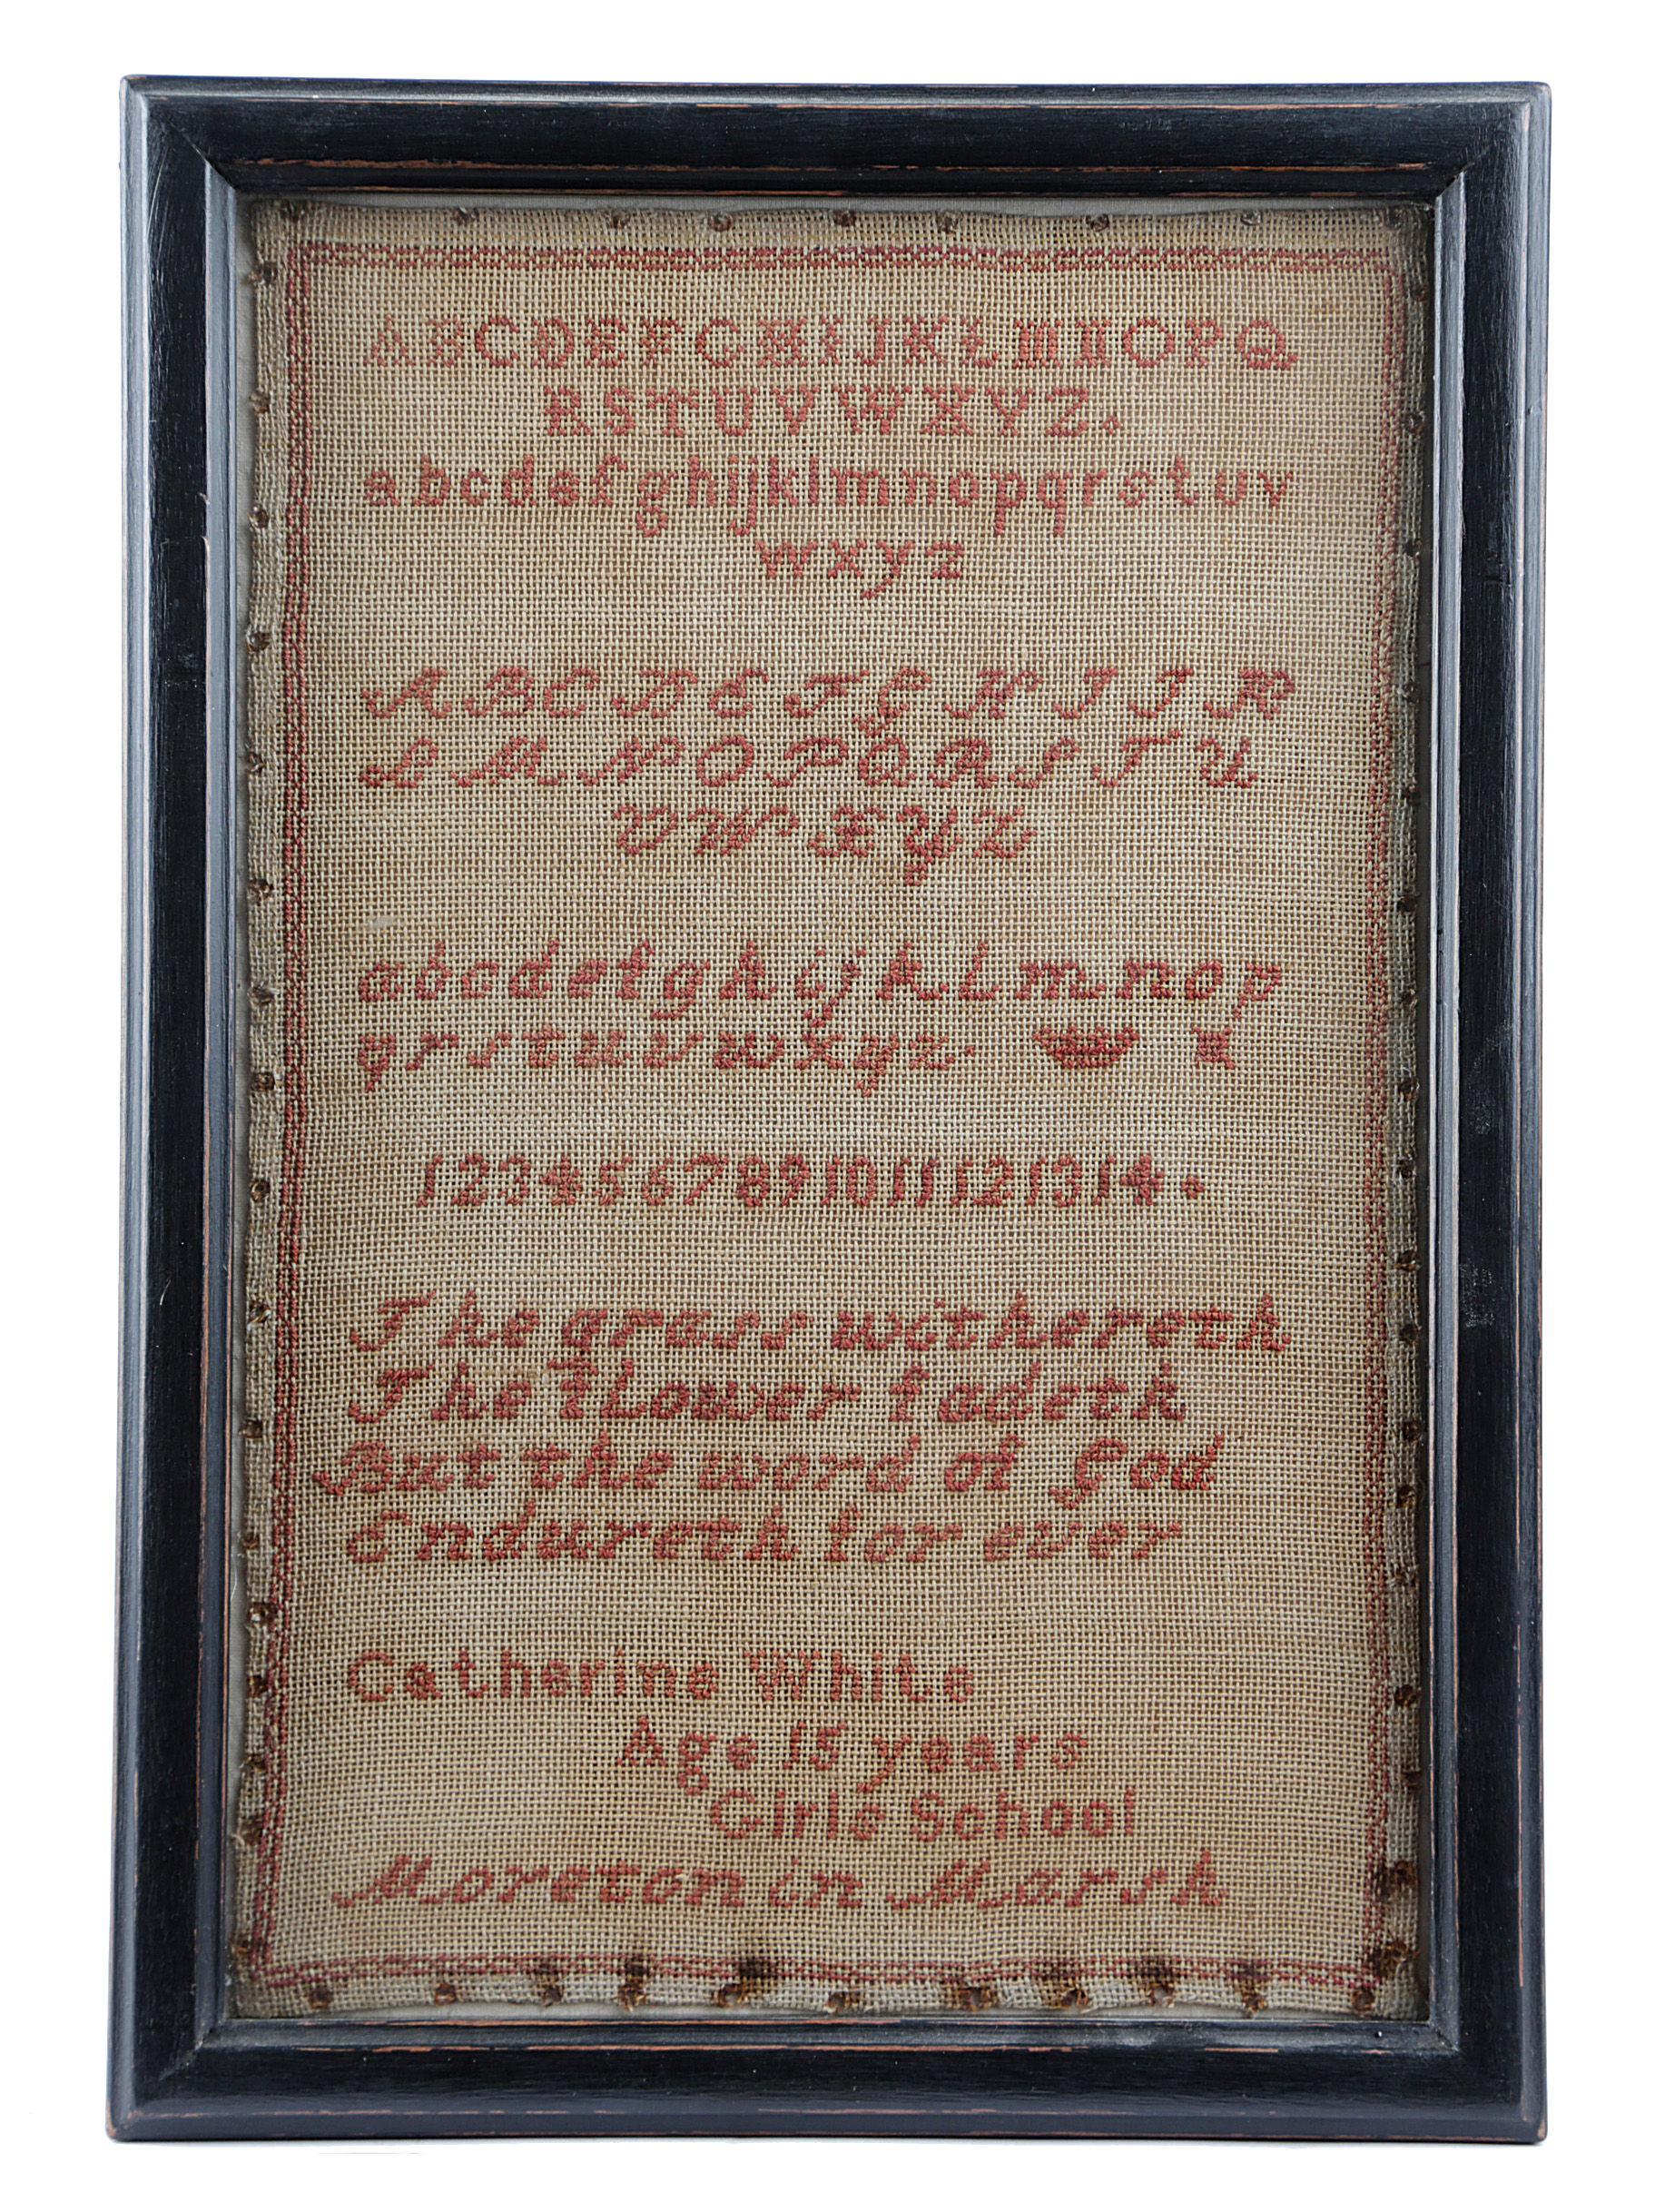 ABCDEFGHIJKLMNOPQ
RSTUVWXYZ.
abcdefghijklmnopqrstuv
wxyz
ABCDEFGHIJK
LMNOPQRSTU
VWXYZ
abcdefghijklmnop
qrstuvwxyz.
1234567891011121314.
The grass withereth
The Flower fadeth
But the word of God
Endureth for ever
Catherine White
Age 15 years
Girls School
Moreton in Marsh